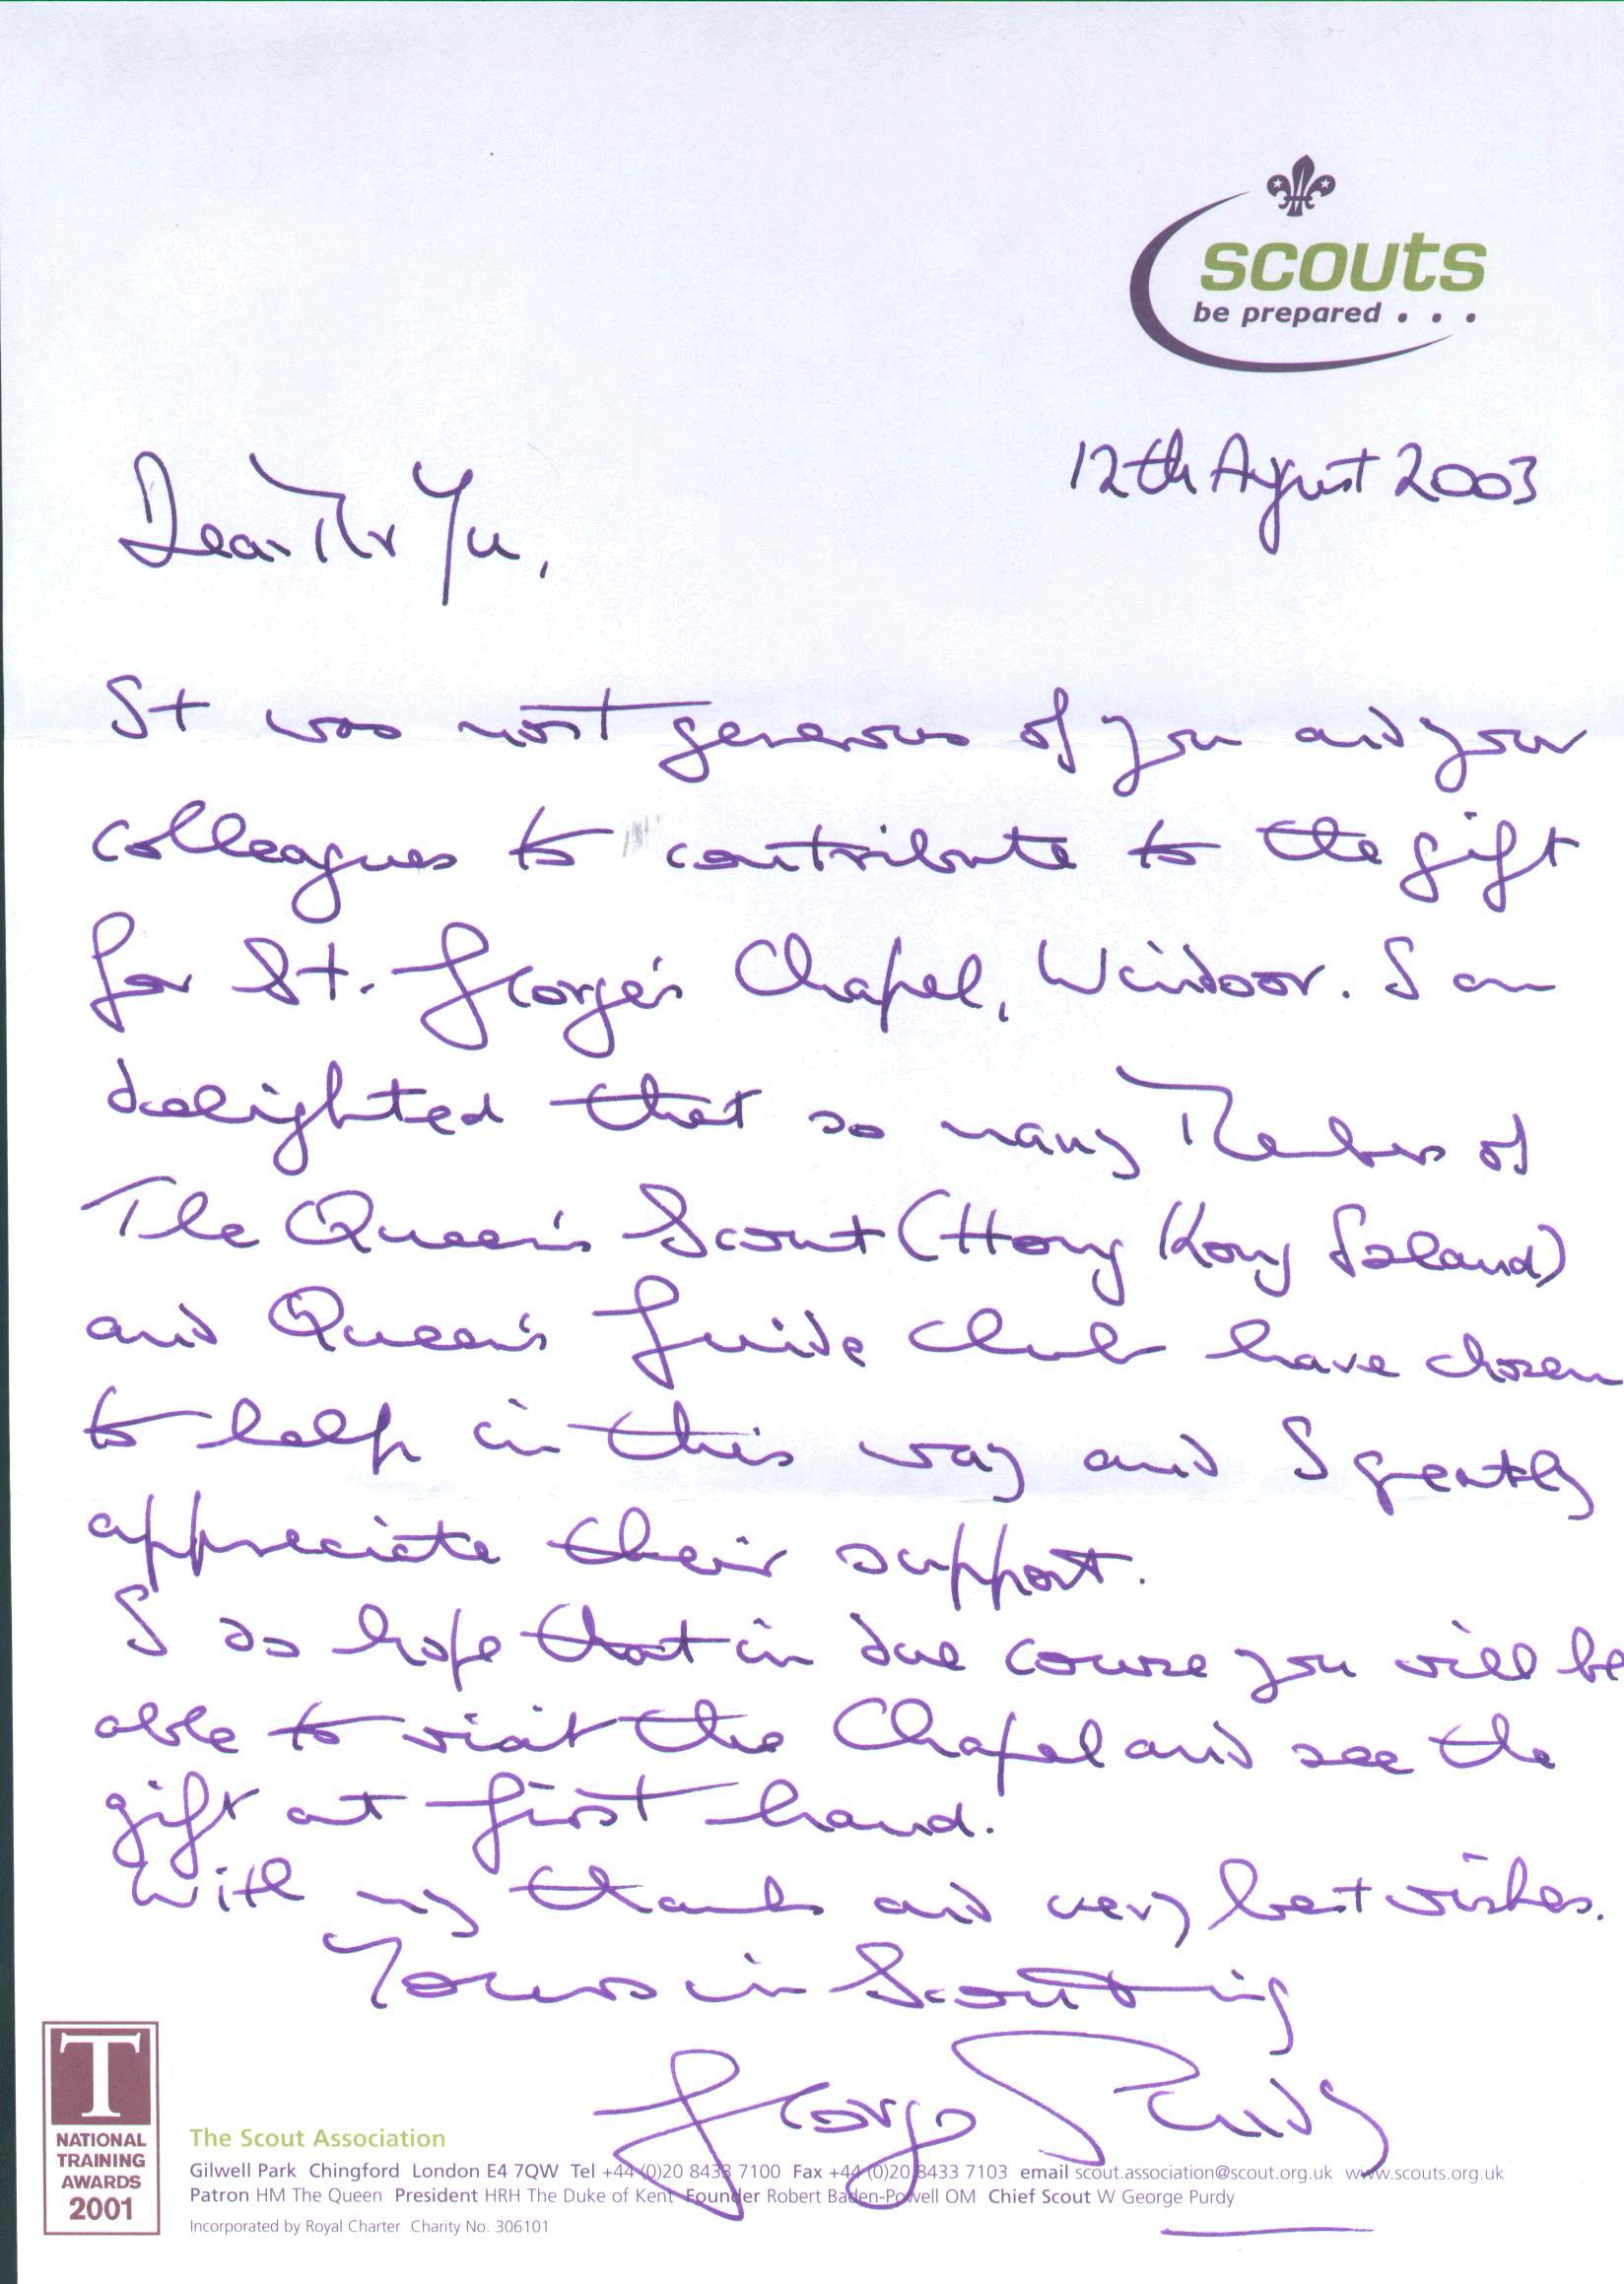 scouts
be prepared . . .
12th August 2003
Dear Mr Yu,
It was most generous of you and your
colleagues to contribute to the gift
for St. George's Chapel, Windsor. I am
delighted that so many Members of
The Queen's Scout (Hong Kong Island)
and Queen's Guide Club have chosen
to help in this way and I greatly
appreciate their support.
I do hope that in due course you will be
able to visit the Chapel and see the
gift at first hand.
With my thanks and very best wishes.
Yours in Scouting
George Purdy
T
NATIONAL
TRAINING
AWARDS
2001
The Scout Association
Gilwell Park Chingford London E4 7QW Tel +44 (0)20 8433 7100 Fax +44 (0)20 8433 7103 email scout.association@scout.org.uk www.scouts.org.uk
Patron HM The Queen President HRH The Duke of Kent Founder Robert Baden-Powell OM Chief Scout W George Purdy
Incorporated by Royal Charter Charity No. 306101